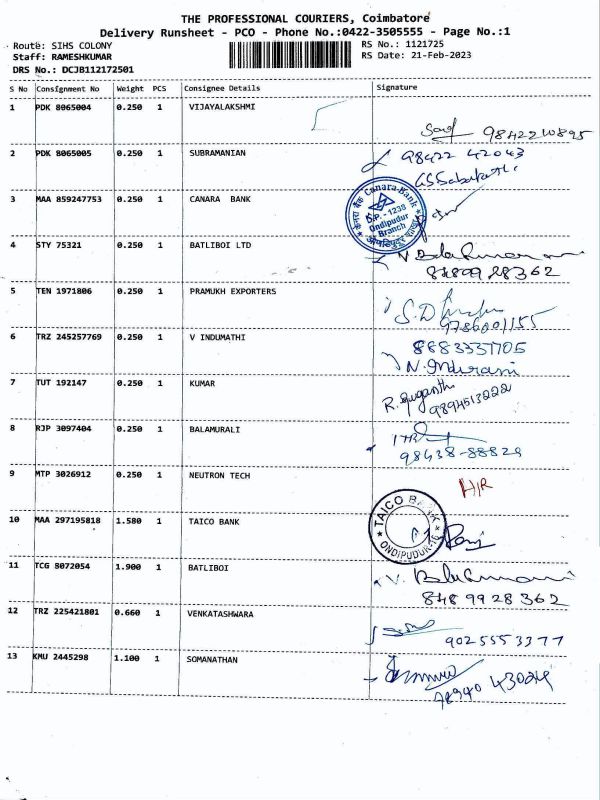 THE PROFESSIONAL COURIERS, Coimbatore
Delivery Runsheet - PCO - Phone No.:0422-3505555 - Page No.:1
Route: SIHS COLONY RS No.: 1121725
Staff: RAMESHKUMAR RS Date: 21-Feb-2023
DRS No.: DCJB112172501
S No Consignment No Weight PCS Consignee Details Signature
1 PDK 8065004 0.250 1 VIJAYALAKSHMI
9842210895
2 PDK 8065005 0.250 1 SUBRAMANIAN 98422 42043
3 MAA 859247753 0.250 1 CANARA BANK
Canara Bank
D.P. - 1238
Ondipudur
Branch
4 STY 75321 0.250 1 BATLIBOI LTD
8489928362
5 TEN 1971806 0.250 1 PRAMUKH EXPORTERS
9786001155
6 TRZ 245257769 0.250 1 V INDUMATHI 8883331705
N. Indurani
7 TUT 192147 0.250 1 KUMAR
9894513222
8 RJP 3097404 0.250 1 BALAMURALI
98438-88829
9 MTP 3026912 0.250 1 NEUTRON TECH
10 MAA 297195818 1.580 1 TAICO BANK
TAICO BANK
ONDIPUDUR-16
11 TCG 8072054 1.900 1 BATLIBOI
8489928362
12 TRZ 225421801 0.660 1 VENKATASHWARA
9025553377
13 KMU 2445298 1.100 1 SOMANATHAN